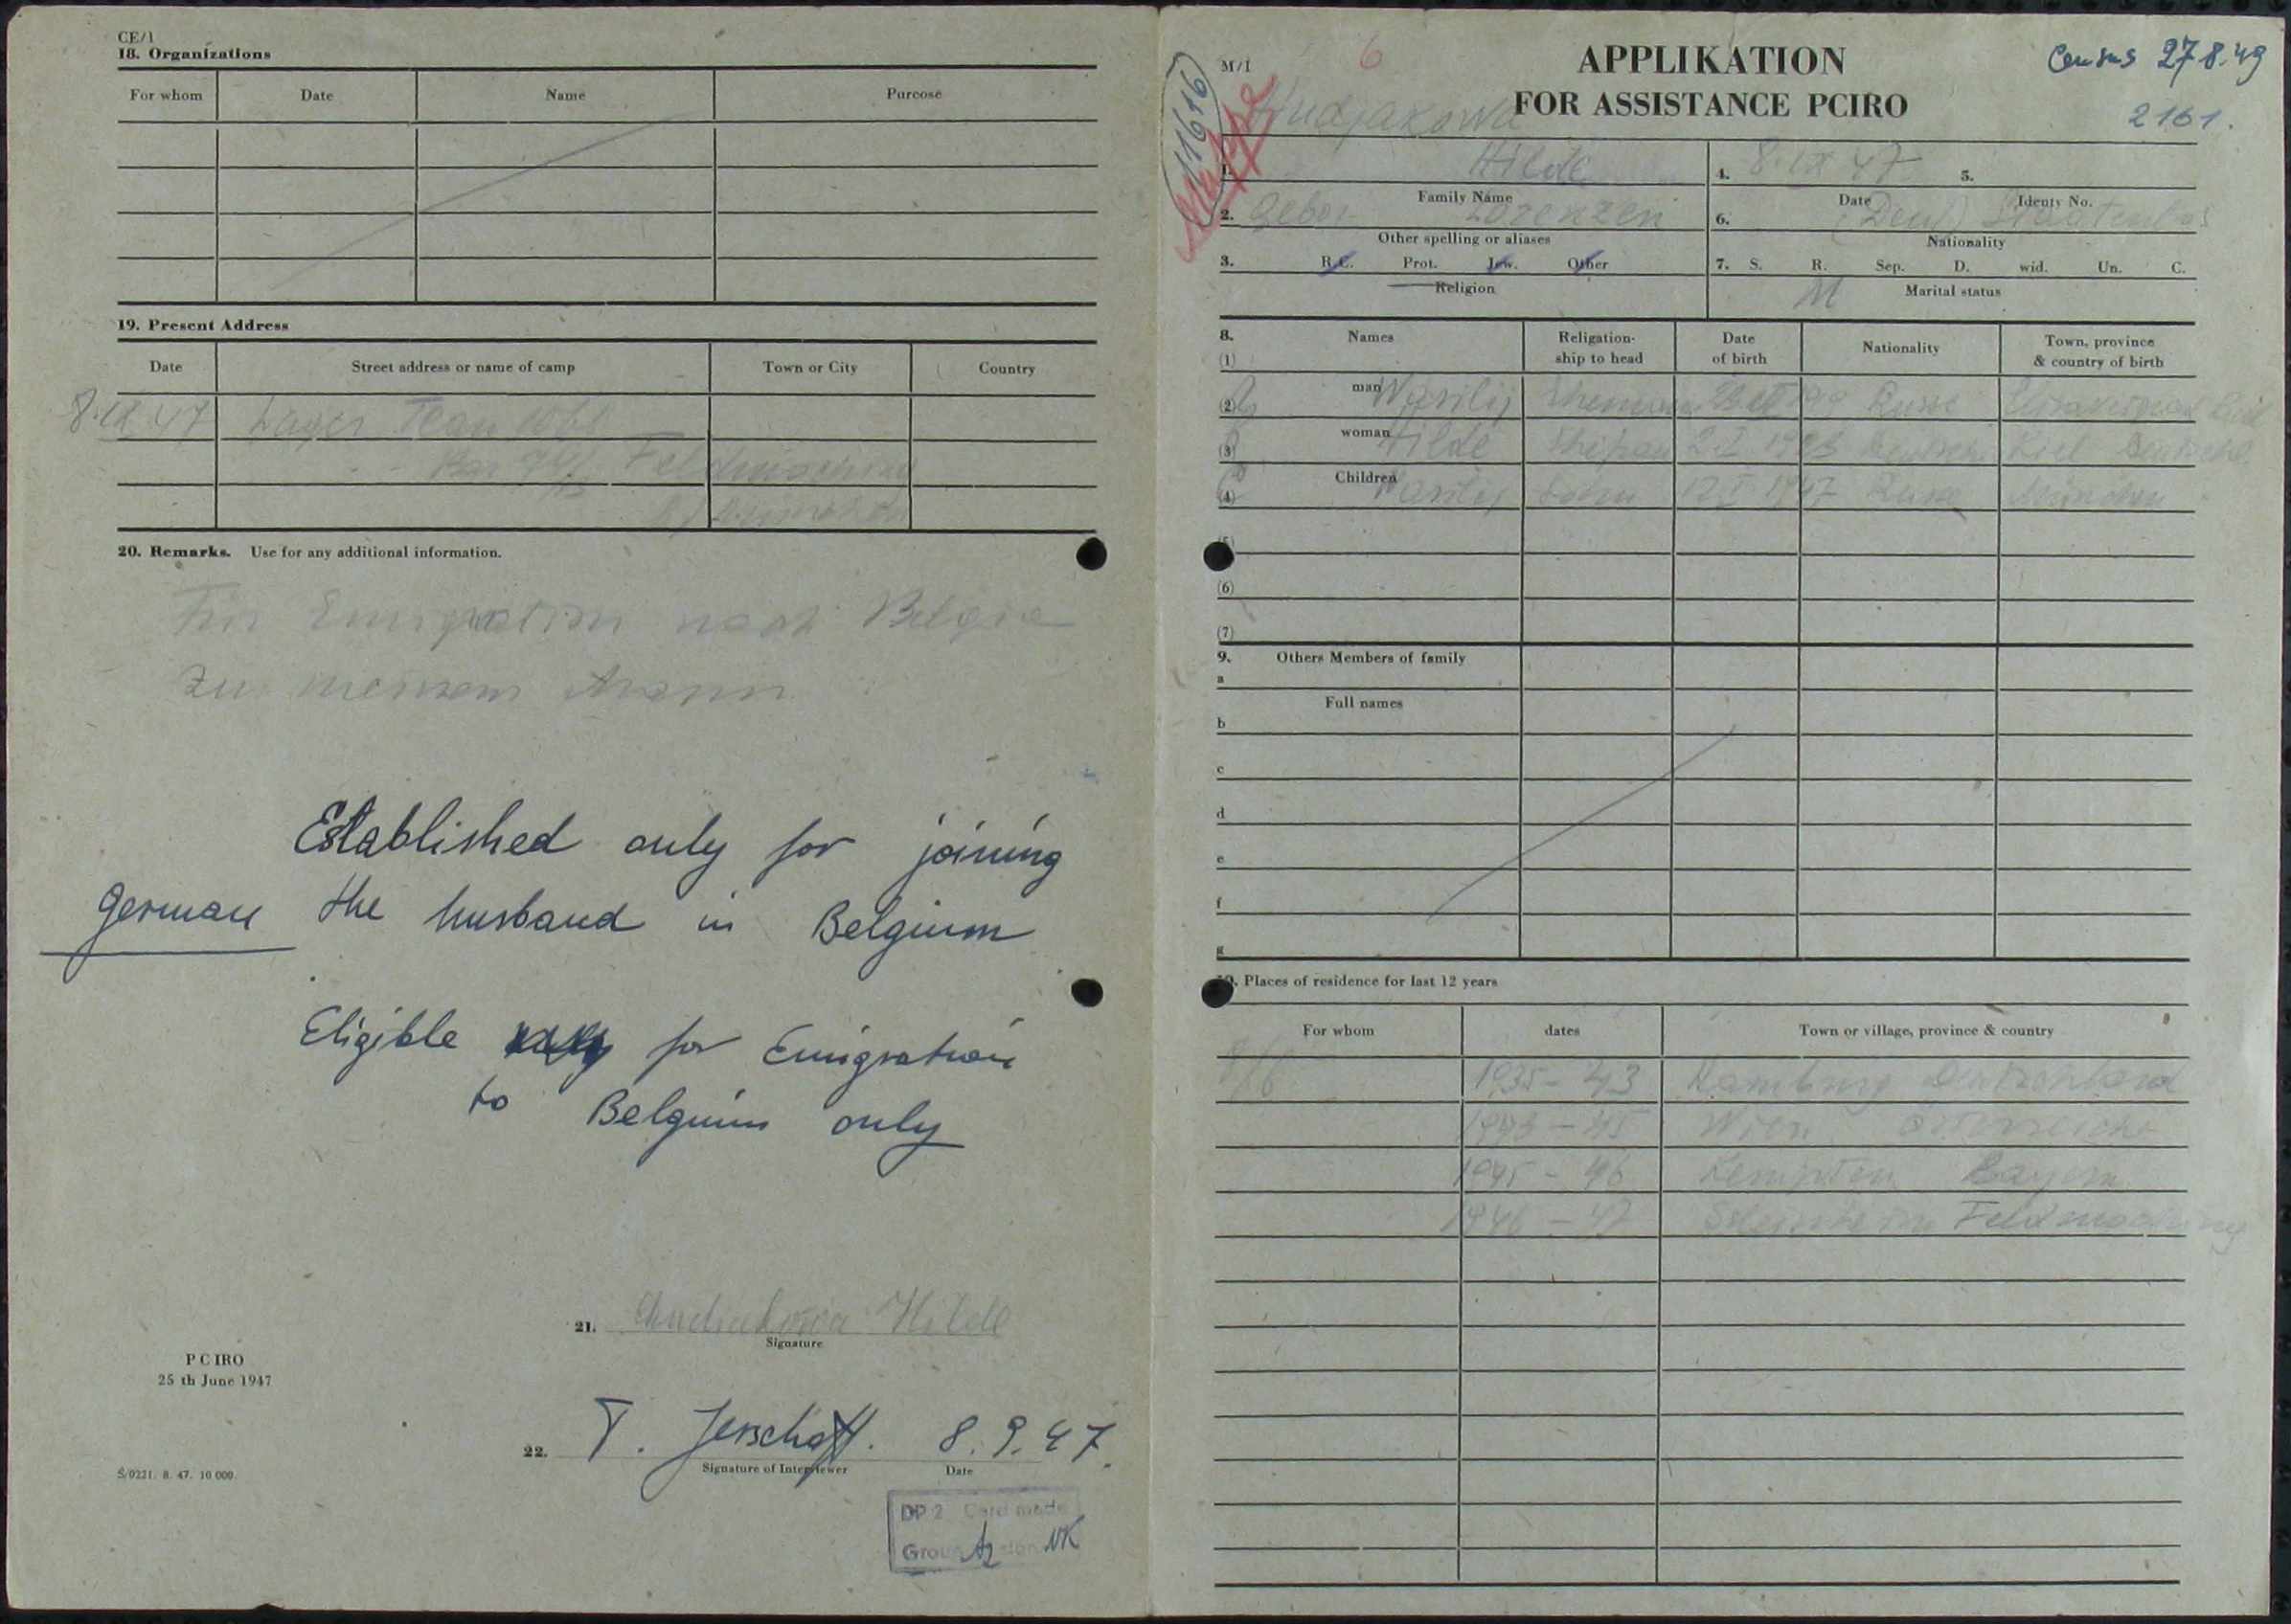 CE/1
18. Organizations
For whom Date Name Purcose
19. Present Address
Date Street address or name of camp Town or City Country
8.IX.47 Lager
Feldmoching
20. Remarks. Use for any additional information.
Für Emigration nach Belgie
zu meinem Mann
Established only for joining
german the husband in Belgium
Eligible for Emigration
to Belgium only
21. Chudiakowa Hilde
Signature
P C IRO
25 th June 1947
22. T. Jerschoff. 8.9.47.
Signature of Interviewer Date
Š/0221. 8. 47. 10 000.
DP 2 Card made
Group NK
M/1 6
APPLIKATION
FOR ASSISTANCE PCIRO
Census 27.8.49
2161.
11616
Hudjakowa
1. Hilde
Family Name
4. 8.IX 47 5.
Date Identy No.
2. Gebor. Lorenzen
Other spelling or aliases
6. (Deut) Staatenlos
Nationality
3. R.C. Prot. Jew. Other
Religion
7. S. R. Sep. D. wid. Un. C.
M Marital status
8. Names Religation- ship to head Date of birth Nationality Town, province & country of birth
(1) man Wasilij Russe
(2) woman Hilde 1923 Kiel
(3) Children Wasilij Sohn 12 I 1947 Russe München
(4)
(5)
(6)
(7)
9. Others Members of family
a
Full names
b
c
d
e
f
g
10. Places of residence for last 12 years
For whom dates Town or village, province & country
1935 - 43 Hamburg Deutschland
1943 - 45 Wien Österreich
1945 - 46 Kempten Bayern
1946 - 47 Feldmoching